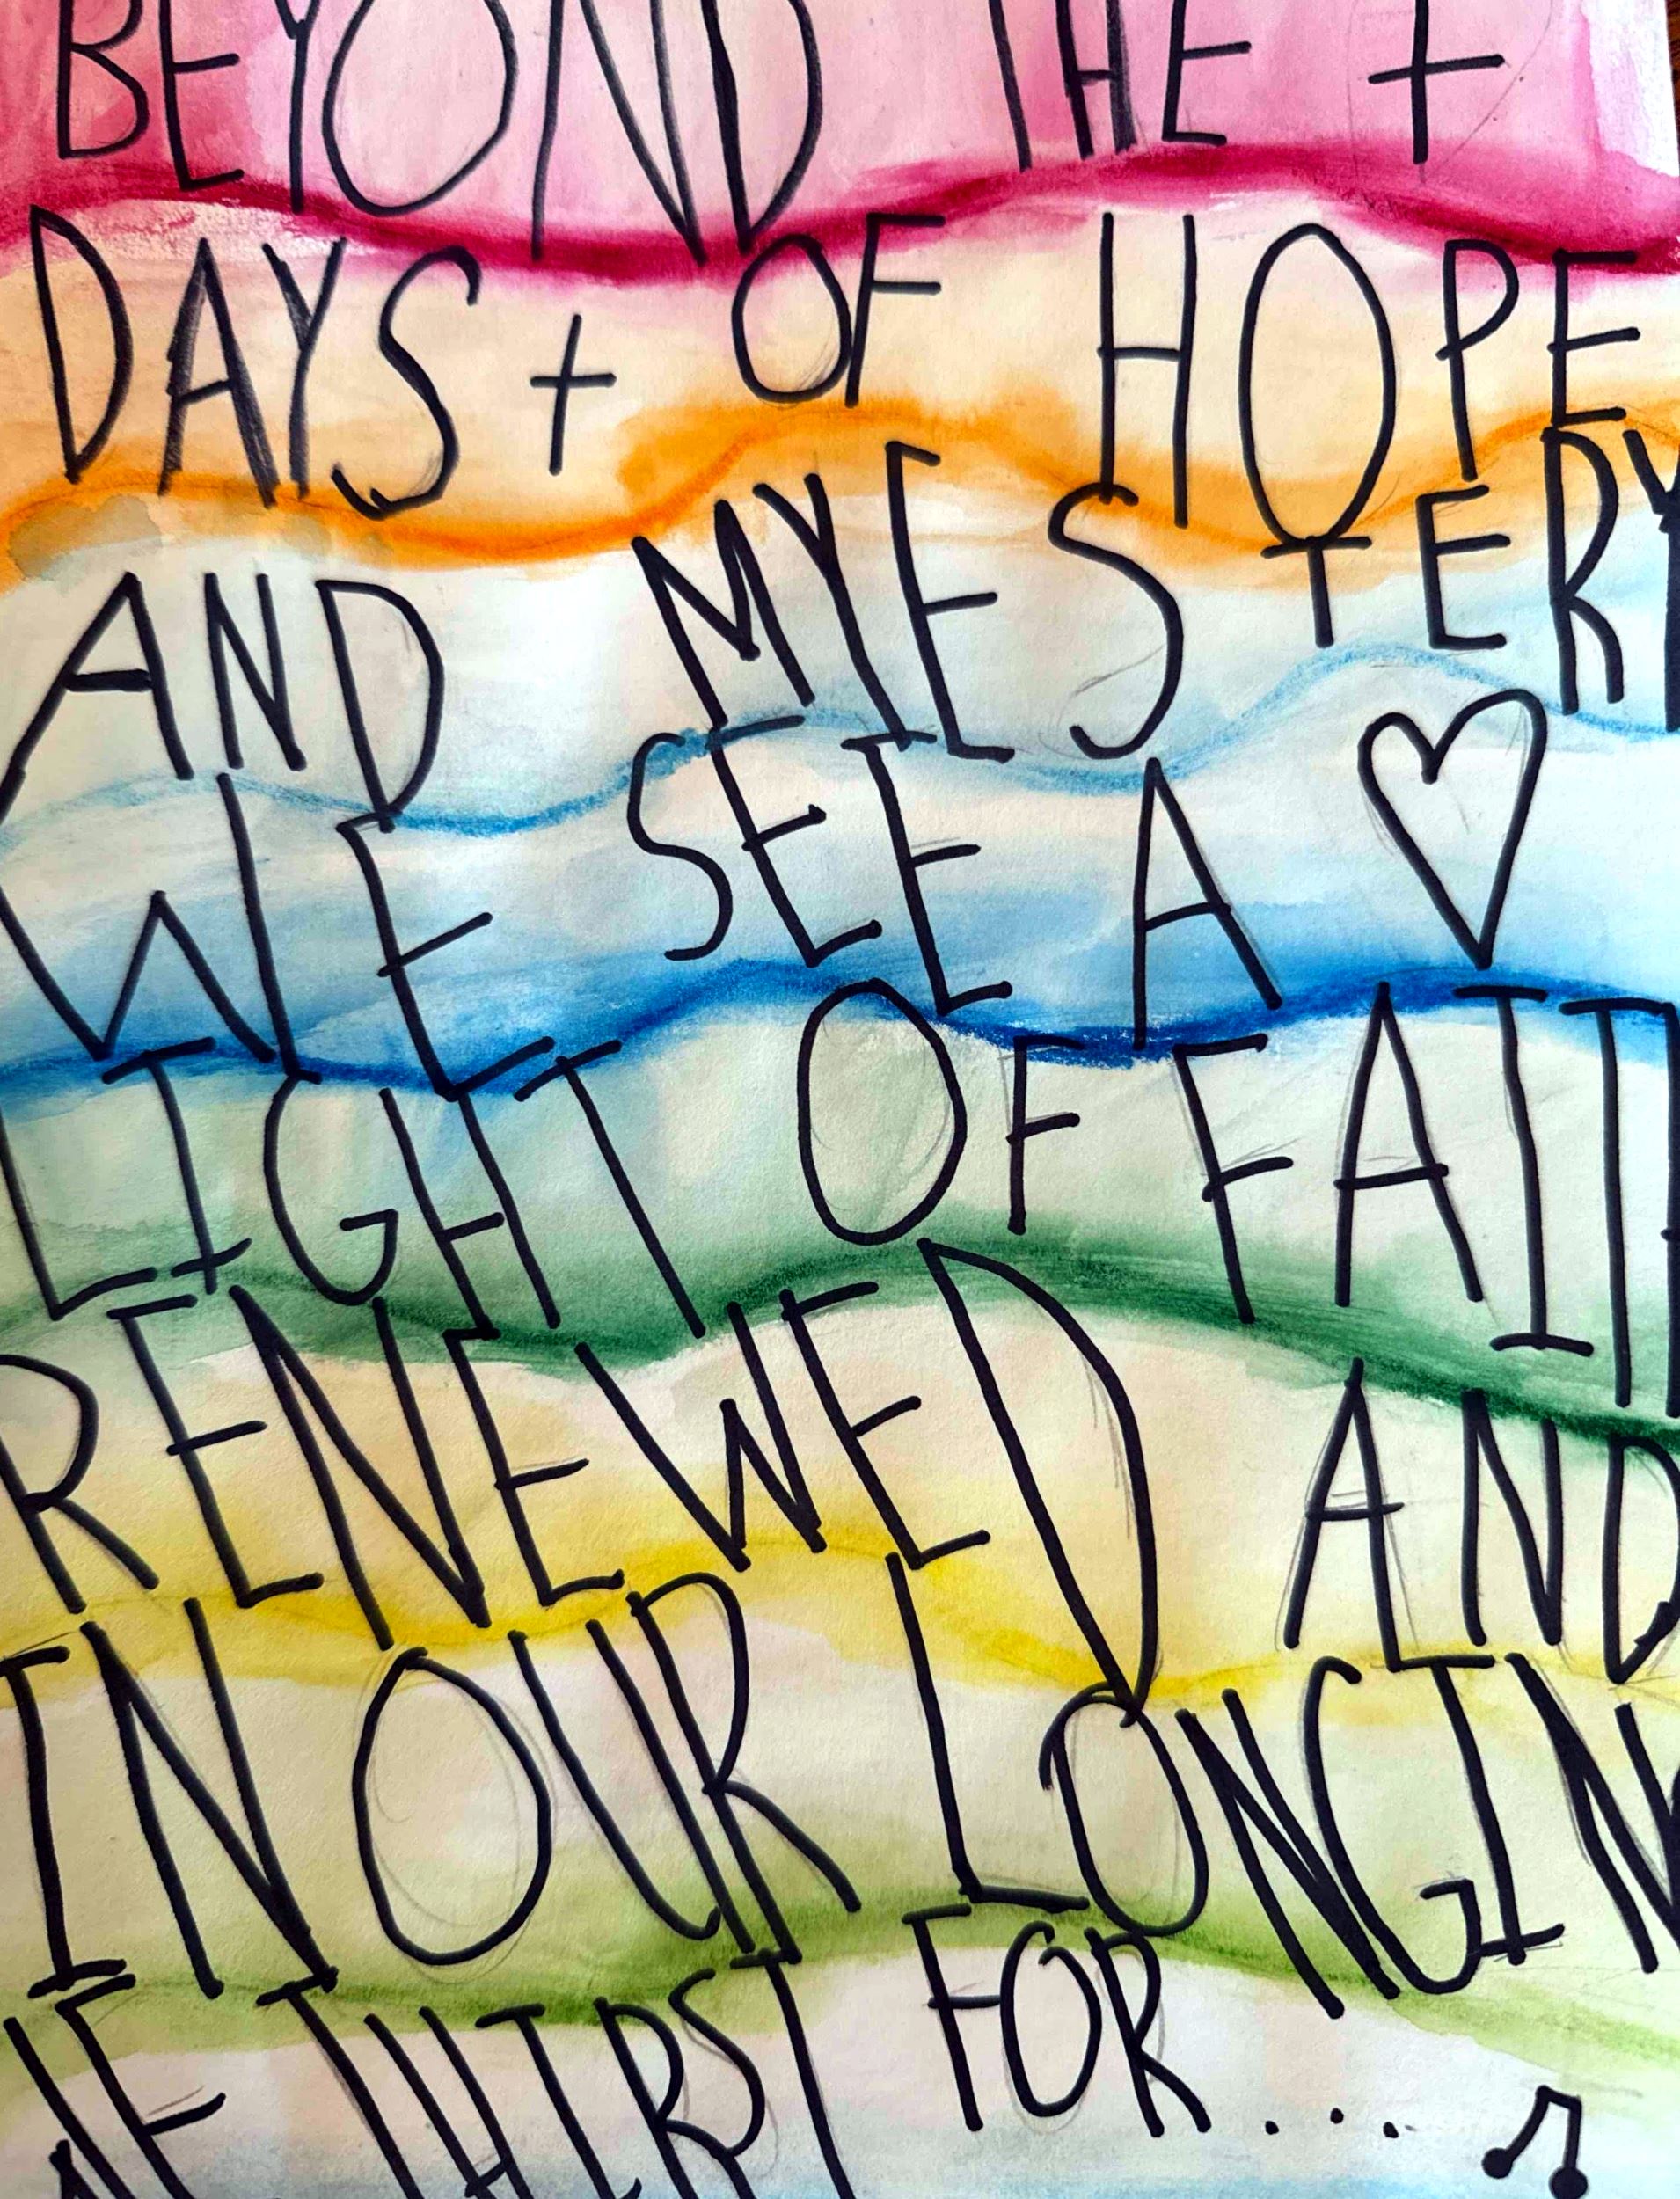 BEYOND THE +
DAYS + OF HOPE
AND MYESTERY
WE SEE A ♡
LIGHT OF FAITH
RENEWED AND
IN OUR LONGIN
WE THIRST FOR.... ♫